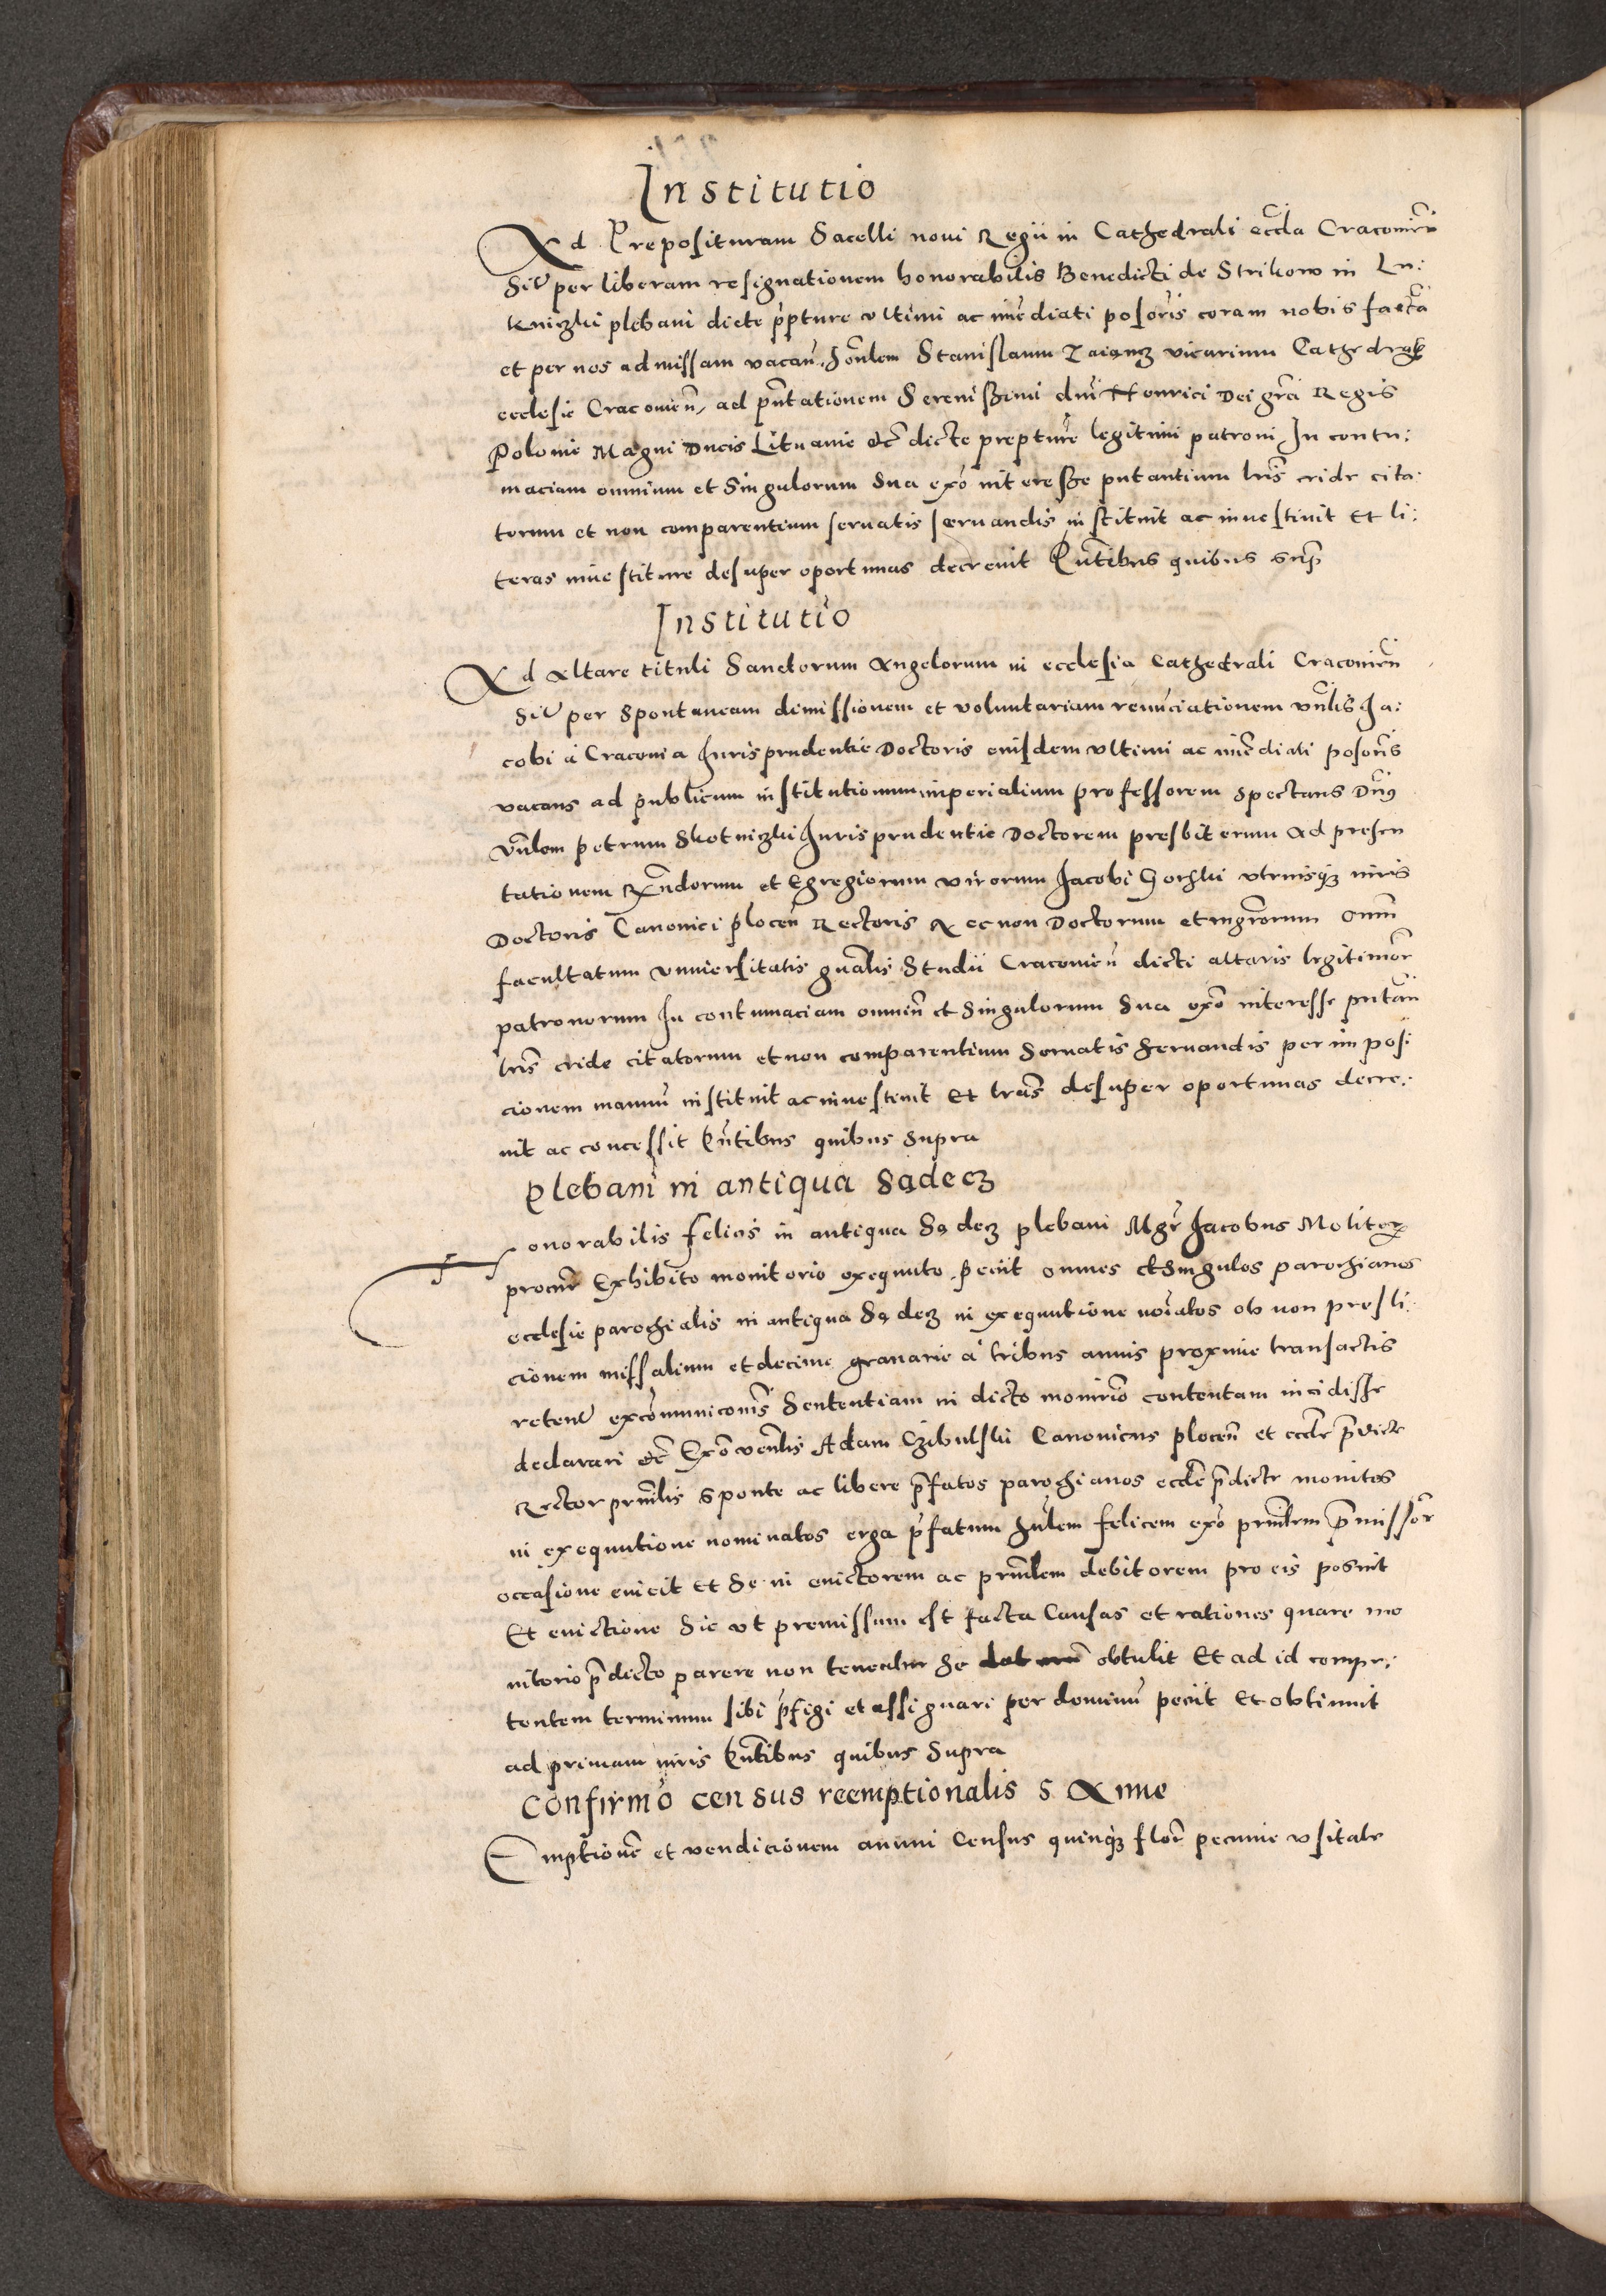 Institutio
Ad Preposituram Sacelli novi Regii in Cathedrali eccla Cracovien̄
Sit̄ per liberam resignationem honorabilis Benedicti de Strikow in Lu:
kniczki plebani dicte p̄pture ultimi ac im̄ediati posōris coram nobis factā
et per nos admissam vacan̄, hōnlem Stanislaum Zaiancz vicarium Cathedral
ecclesie Cracovien̄, ad pn̄tationem Serenissimi dn̄i Henrici Dei grā Regis
Polonie Magni Ducis Lituanie etc̄ dicte prepture legitimi patroni In contu:
maciam omnium et Singulorum Sua exō interesse putantium lrīs cride cita:
torum et non comparentium servatis servandis instituit ac investivit Et li:
teras investiture desuper oportunas decrevit Pn̄tibus quibus sup̄
Institutio
Ad Altare tituli Sanctorum Angelorum in ecclesia Cathedrali Cracovien̄
Sit̄ per Spontaneam dimissionem et voluntariam renūciationem vn̄lis Ja:
cobi à Cracovia Jurisprudentie Doctoris eiusdem ultimi ac im̄ediati posoris
vacans ad publicum institutionum imperialium professorem Spectans Dn̄s
vn̄lem petrum Skotniczki Jurisprudentie Doctorem presbiterum Ad presen
tationem Rx̄ndorum et Egregiorum virorum Jacobi Gorski utriusq3 iuris
Doctoris Canonici plocen̄ Rectoris Necnon Doctorum et mgrōrum Om̄
facultatum universitatis gn̄alis Studii Cracovien̄ dicti altaris legitimor̄
patronorum In contumaciam omniū et Singulorum Sua exō interesse putan̄
lrīs cride citatorum et non comparentium Servatis Servandis per imposi
cionem manuū instituit ac investivit Et lrās desuper oportunas decre:
vit ac concessit Pn̄tibus quibus Supra
Plebani in antiqua Sądecz
onorabilis felicis in antiqua Sądecz plebani Mgr̄ Jacobus Molitor
procur̄ Exhibito monitorio exequuto, petiit omnes et Singulos parochianos
ecclesie parochialis in antiqua Sądecz in exequutione noīatos ob non presti:
cionem missalium et decime granarie a tribus annis proxime transactis
reten̄ excōmunicoīs Sententiam in dicto monirio contentam incidisse
declarari etc̄ Exō venlīs Adam Czibulski Canonicus plocen̄ et eccle p̄dicte
Rector prn̄lis Sponte ac libere p̄fatos parochianos eccle p̄dicte monitos
in exequutione nominatos erga p̄fatum hn̄lem felicem exō prn̄lem p̄missor̄
occasione evicit Et Se in evictorem ac prn̄lem debitorem pro eis posuit
Et evictione Sic ut premissum est facta Causas et rationes quare mo
nitorio p̄dicto parere non teneatur Se obtulit Et ad id compe:
tentem terminum sibi p̄figi et assignari per dominū petiit Et obtinuit
ad primam iuris Pn̄tibus quibus Supra
Confirmo census reemptionalis S Anne
Emptionē et vendicionem annui Census quinq3 flor̄ pecunie usitate